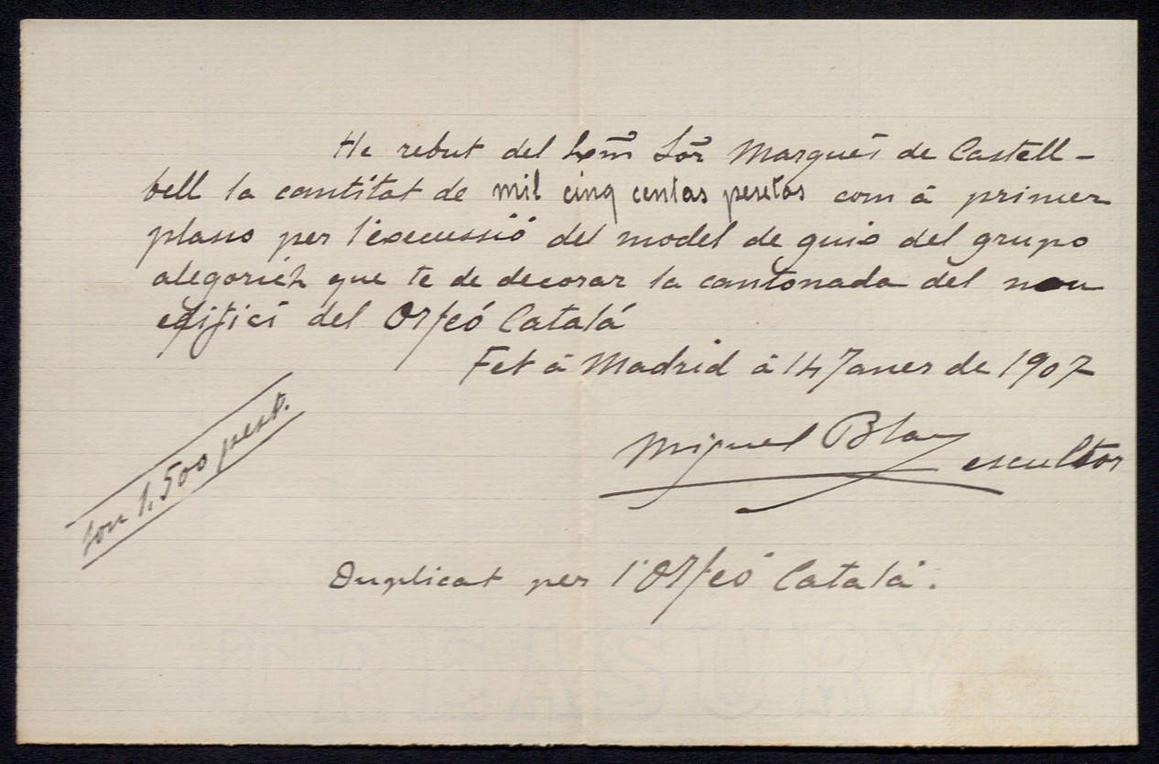 He rebut del Exm̃ Sõr Marqués de Castell-
bell la cantitat de mil cinq centas pesetas com á primer
plasso per l'execussió del model de guix del grupo
alegorich que te de decorar la cantonada del nou
edifici del Orfeó Catalá
Fet á Madrid á 14 Janer de 1907
Miguel Blay escultor
Son 1,500 peset.
Duplicat per l'Orfeó Catalá.
TREASURY